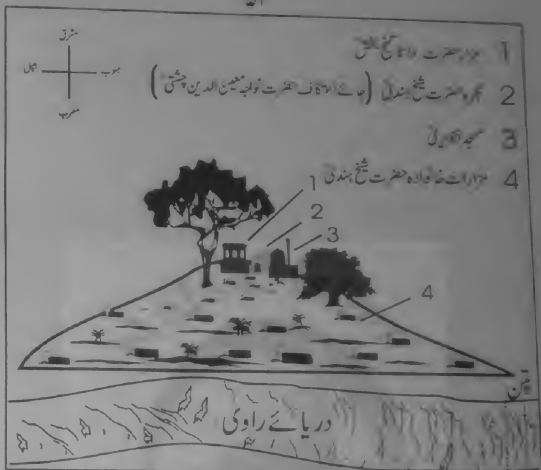 مشرق
شمال
جنوب
مغرب
1 مزار حضرت داتا گنج بخش
2 حجرہ حضرت شیخ ہندی (جائے اعتکاف حضرت خواجہ معین الدین چشتی)
3 مسجد
4 مزارات خانوادہ حضرت شیخ ہندی
1
2
3
4
دریائے راوی